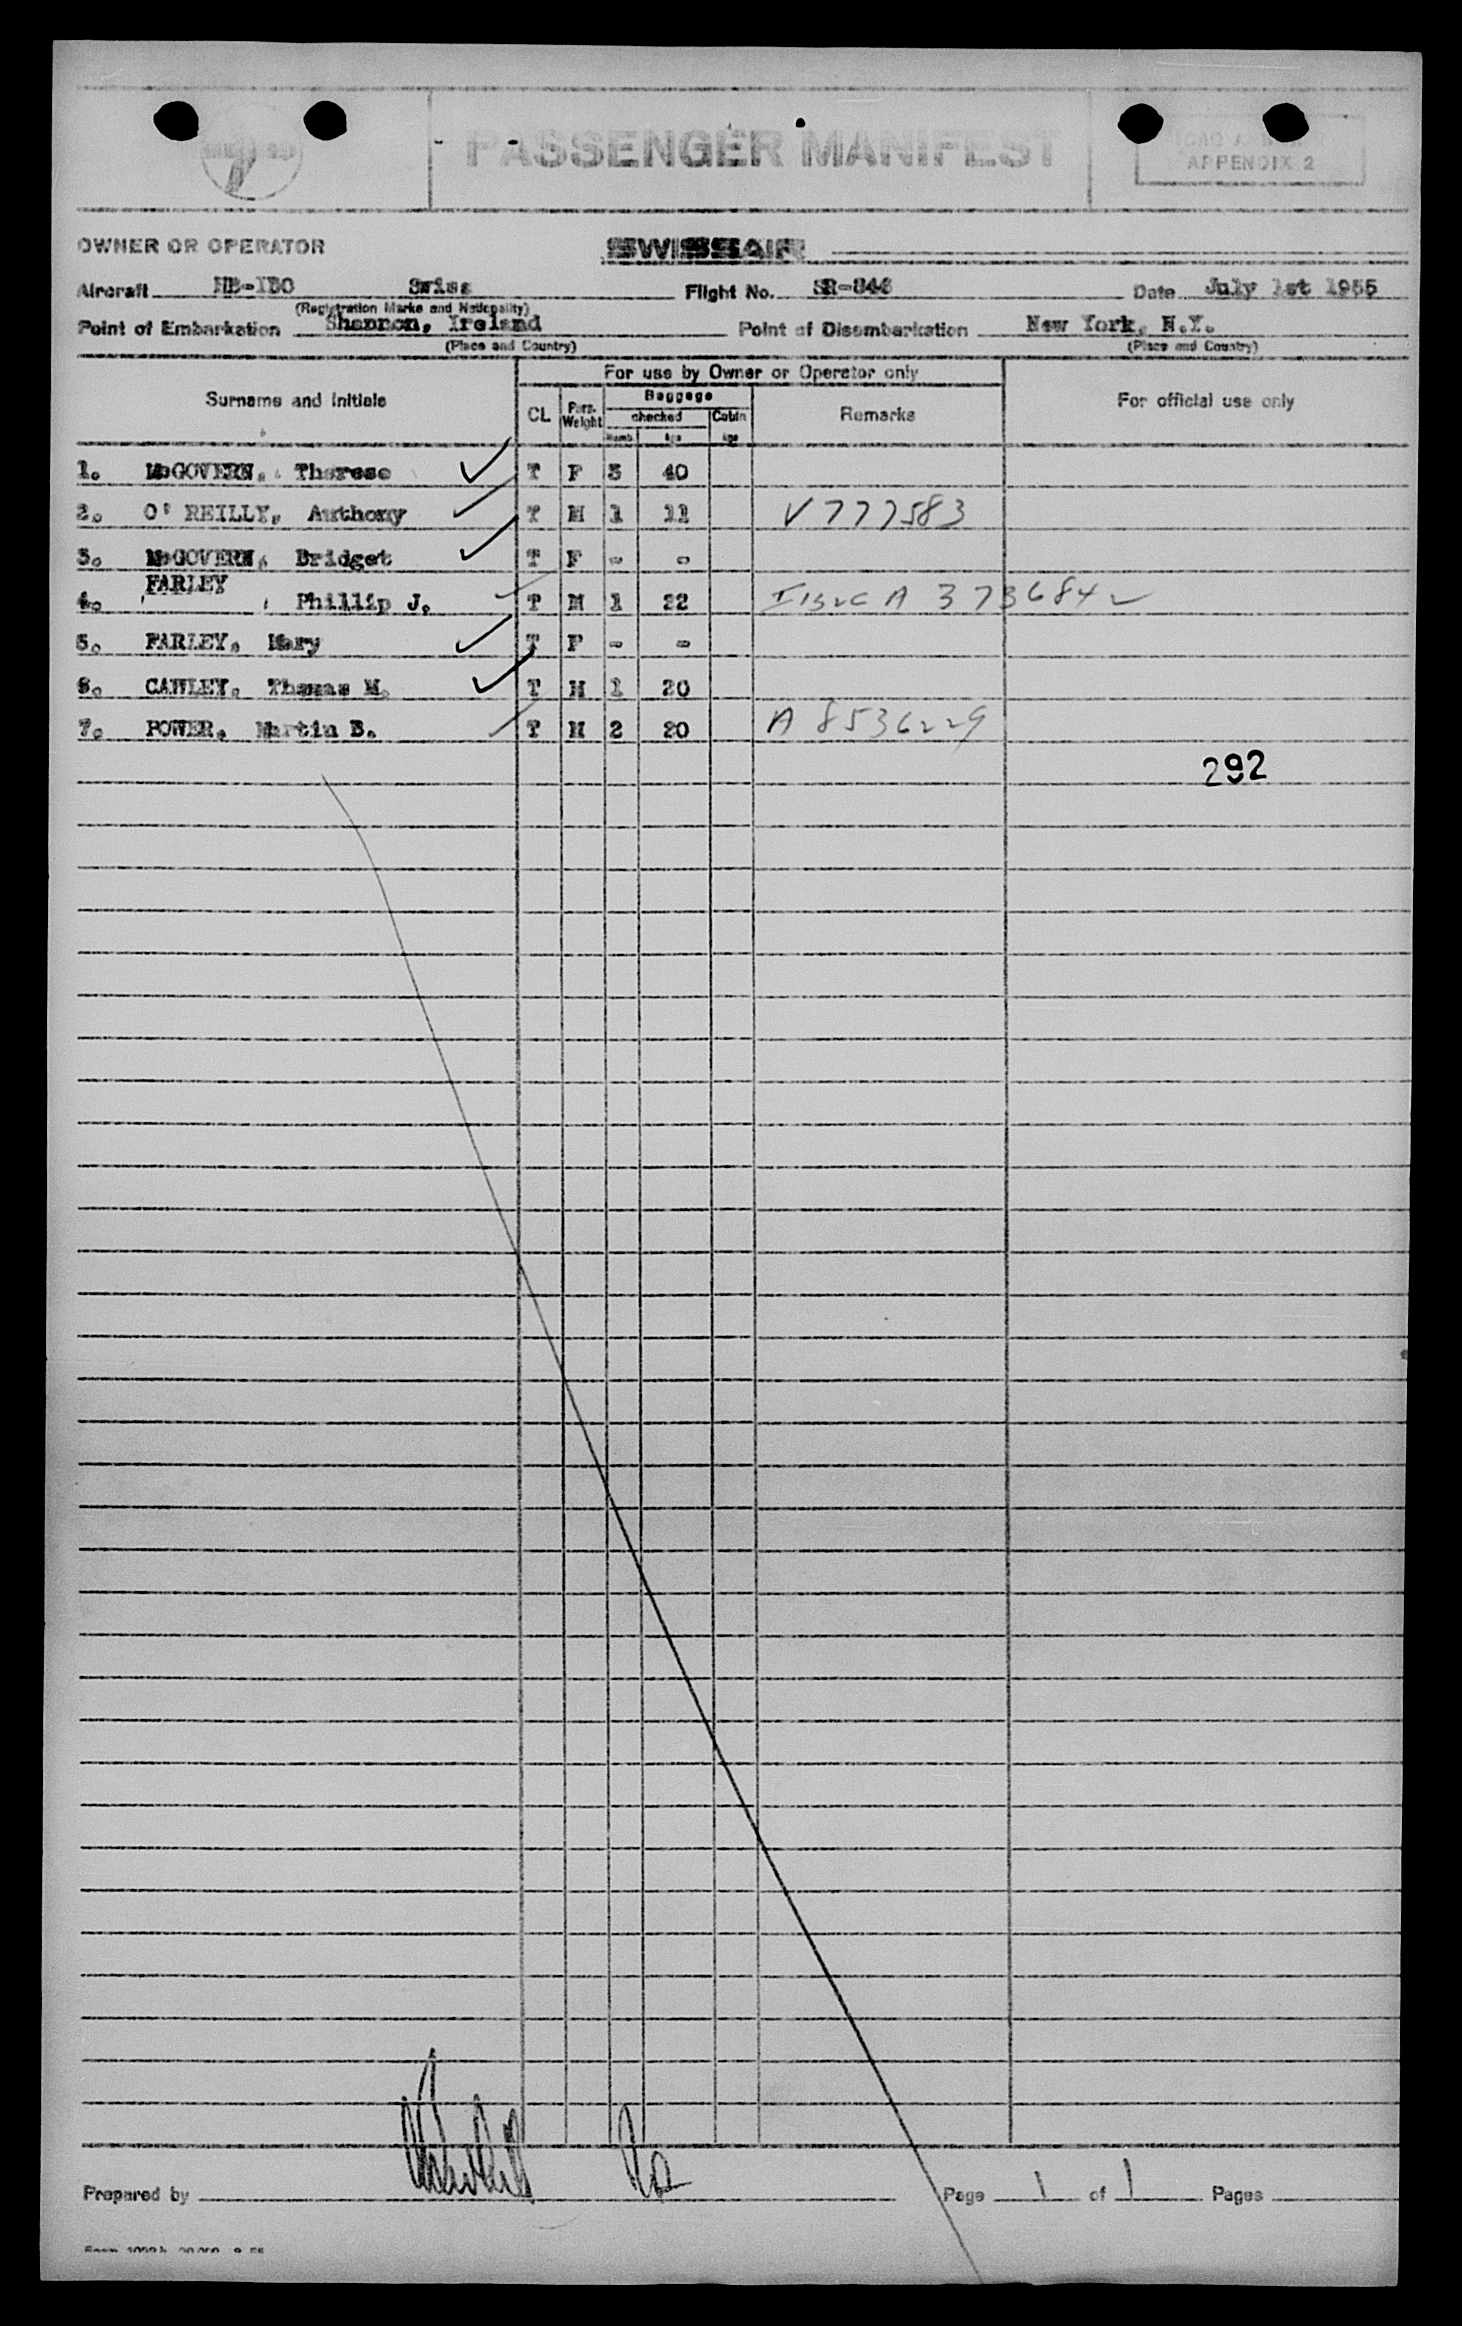 PASSENGER MANIFEST
APPENDIX 2
OWNER OR OPERATOR SWISSAIR
Aircraft HB-IBO Swiss Flight No. SR-846 Date July 1st 1955
(Registration Marks and Nationality)
Point of Embarkation Shannon, Ireland Point of Disembarkation New York, N.Y.
(Place and Country) (Place and Country)
For use by Owner or Operator only
Surname and Initials CL Pass. Weight Baggage Remarks For official use only
checked Cabin
Numb. kgs kgs
1. McGOVERN, Therese T F 3 40
2. O' REILLY, Anthony T M 1 11 V 777583
3. McGOVERN, Bridget T F - -
FARLEY
4. , Phillip J. T M 1 22 A 3736842
5. FARLEY, Mary T F - -
6. CAWLEY, Thomas M. T M 1 20
7. POWER, Martin B. T M 2 20 A 8536229
292
Prepared by Page 1 of 1 Pages